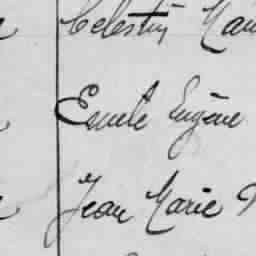 Celestin
Emile Eugène
Jean Marie